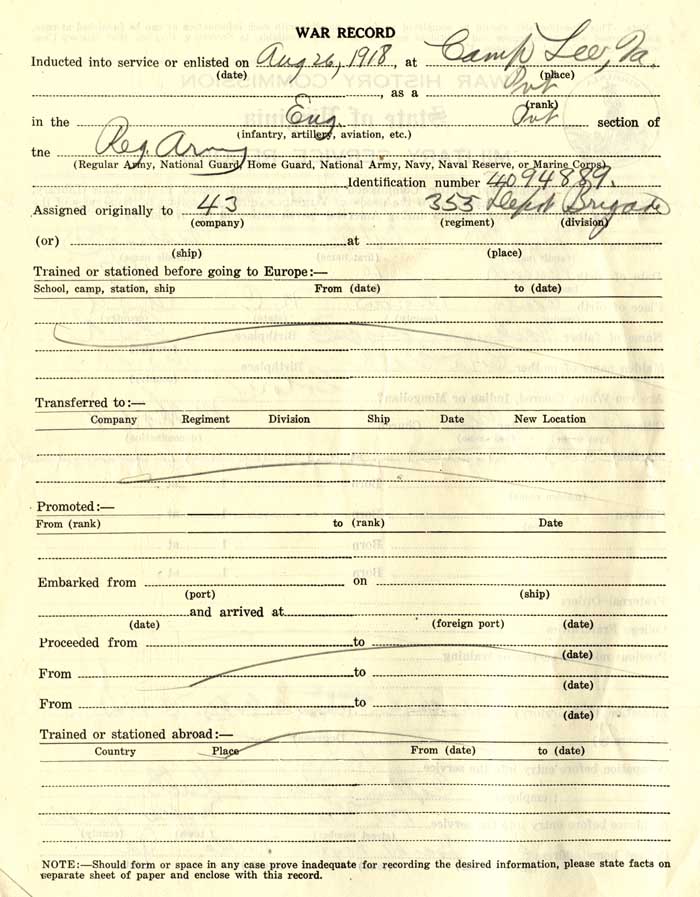 WAR RECORD
Inducted into service or enlisted on Aug 26, 1918, at Camp Lee, Va.
(date) (place)
, as a Pvt
(rank)
in the Eng. Pvt section of
(infantry, artillery, aviation, etc.)
tne Reg. Army
(Regular Army, National Guard, Home Guard, National Army, Navy, Naval Reserve, or Marine Corps)
Identification number 4094889.
Assigned originally to 43 355 Depot Brigade
(company) (regiment) (division)
(or) at
(ship) (place)
Trained or stationed before going to Europe:—
School, camp, station, ship From (date) to (date)
Transferred to:—
Company Regiment Division Ship Date New Location
Promoted:—
From (rank) to (rank) Date
Embarked from on
(port) (ship)
and arrived at
(date) (foreign port) (date)
Proceeded from to
(date)
From to
(date)
From to
(date)
Trained or stationed abroad:—
Country Place From (date) to (date)
NOTE:—Should form or space in any case prove inadequate for recording the desired information, please state facts on
separate sheet of paper and enclose with this record.